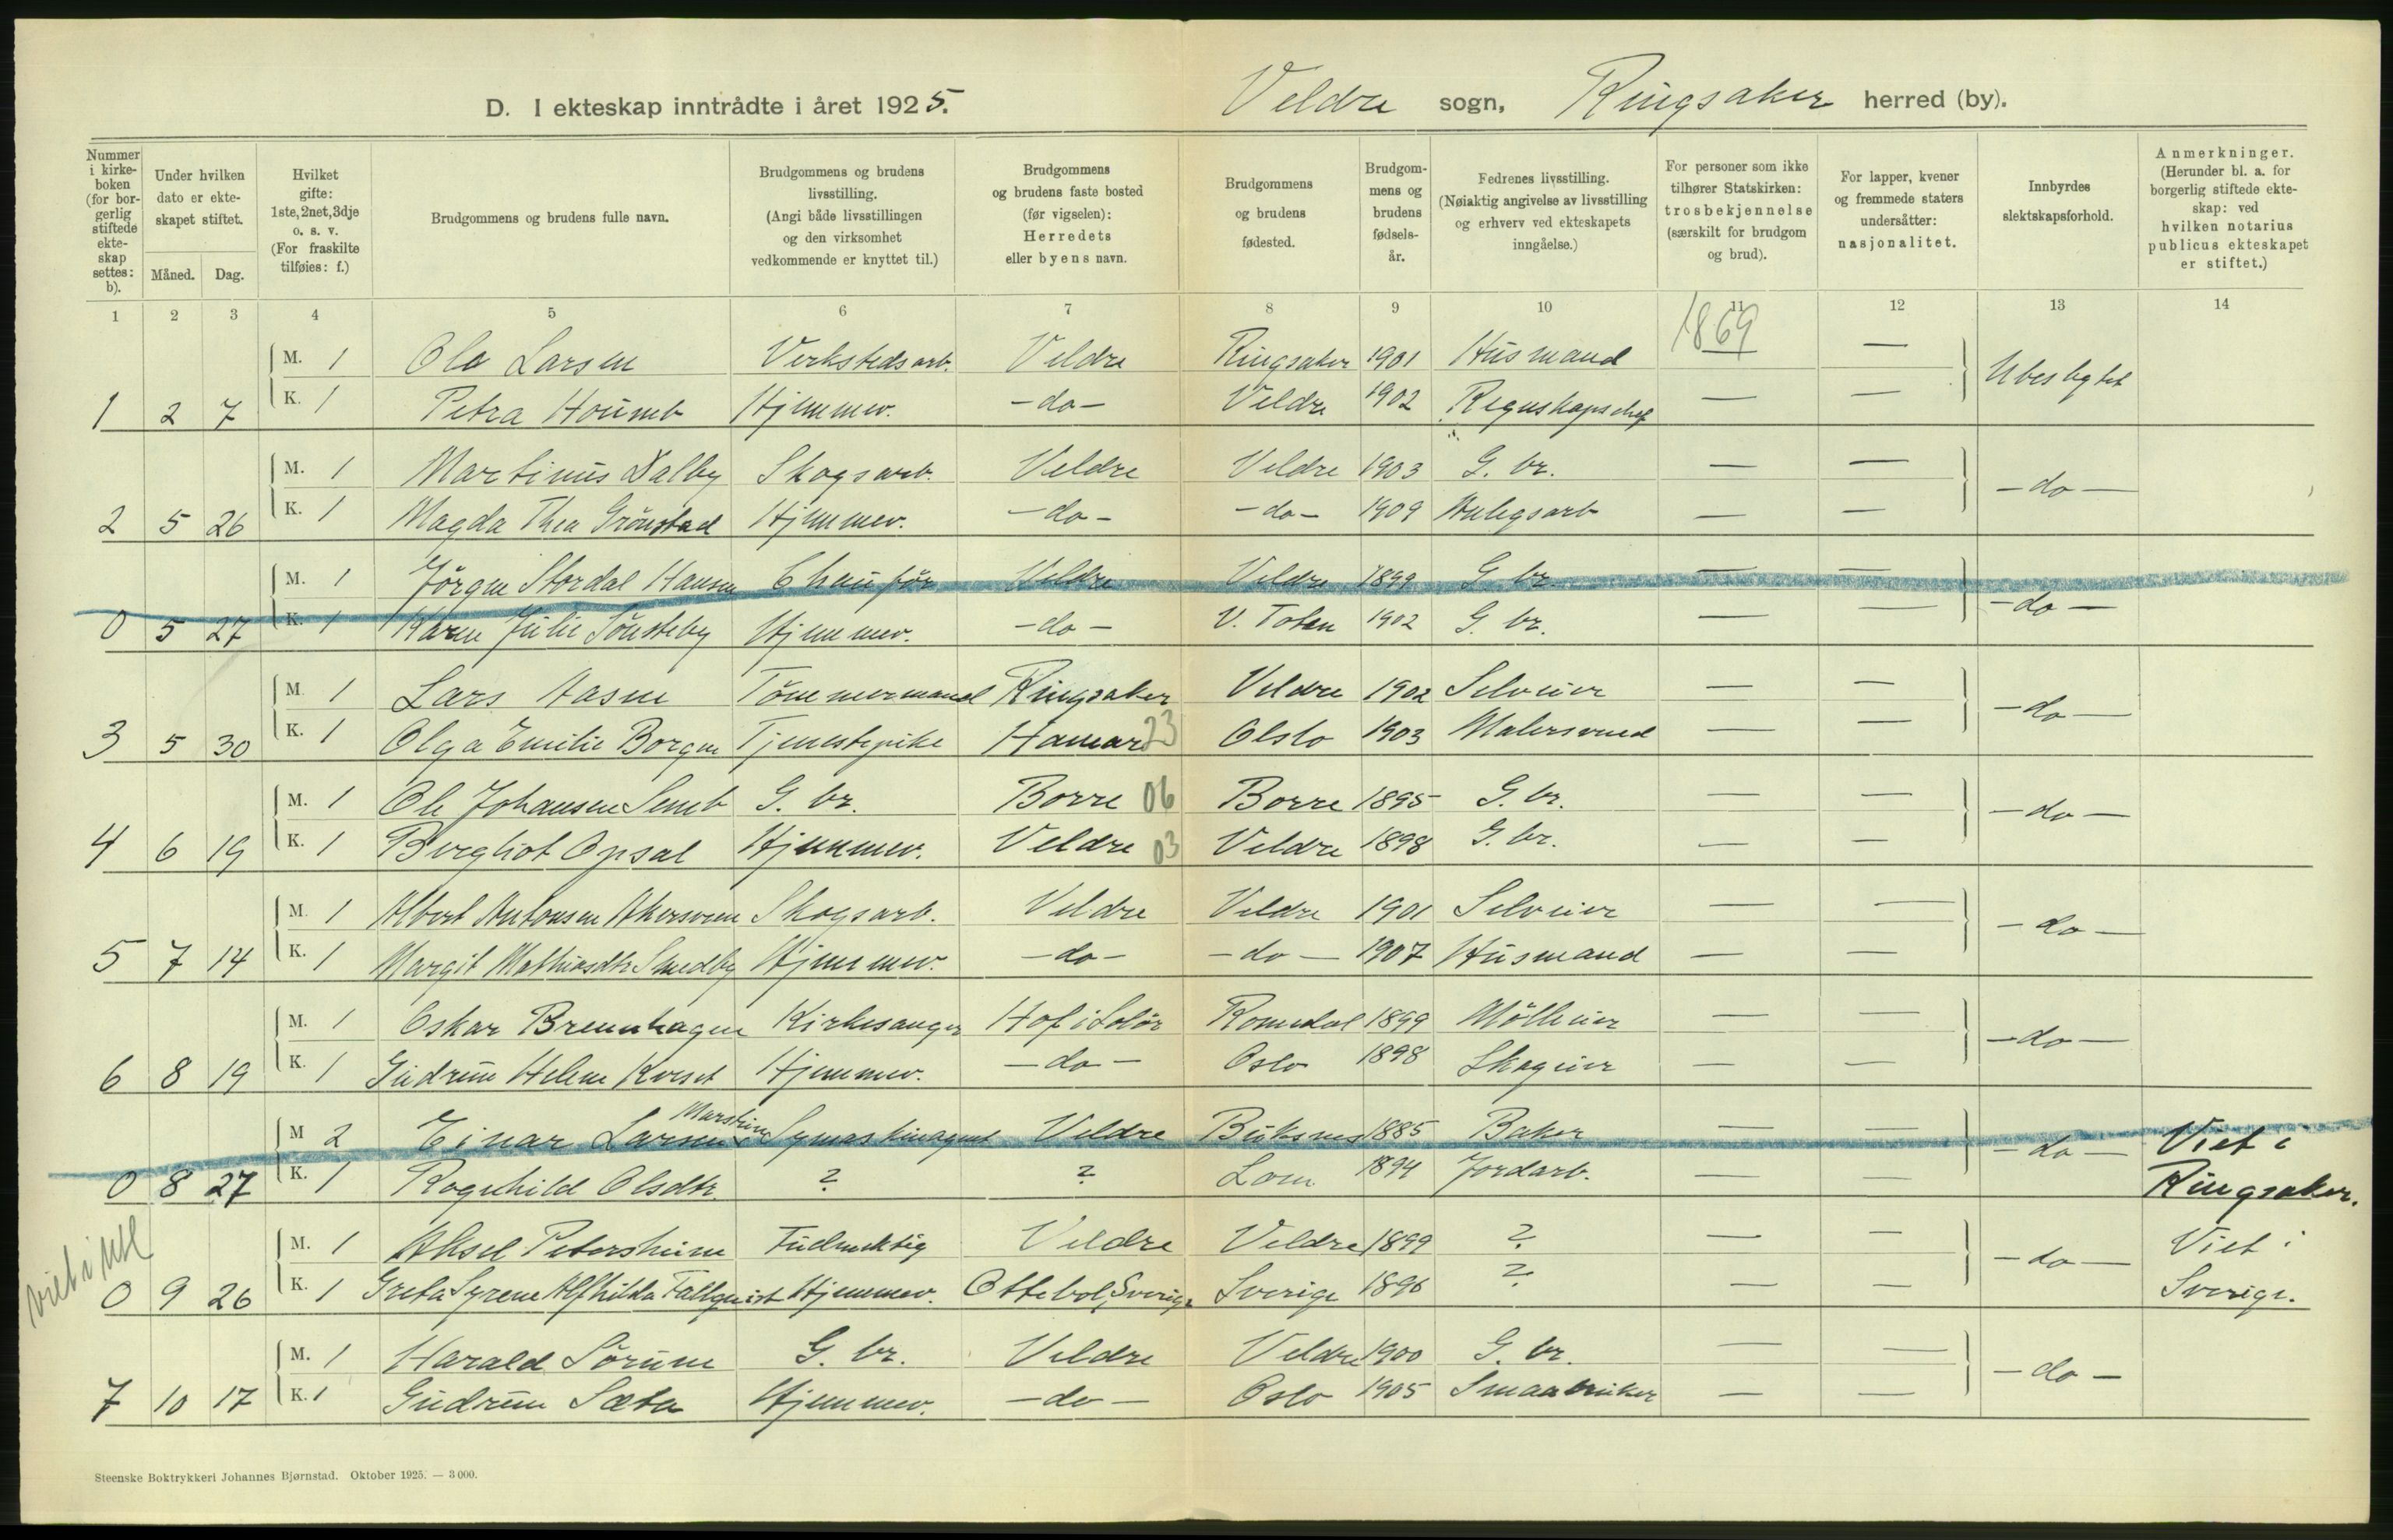 D. I ekteskap inntrådte i året 1925.
Veldre sogn, Ringsaker herred (by).
Nummer i kirkeboken (for borgerlig stiftede ekteskap settes: b).
Under hvilken dato er ekteskapet stiftet.
Måned. Dag.
Hvilket gifte: 1ste, 2net, 3dje o. s. v. (For fraskilte tilføies: f.)
Brudgommens og brudens fulle navn.
Brudgommens og brudens livsstilling. (Angi både livsstillingen og den virksomhet vedkommende er knyttet til.)
Brudgommens og brudens faste bosted (før vigselen): Herredets eller byens navn.
Brudgommens og brudens fødested.
Brudgommens og brudens fødselsår.
Fedrenes livsstilling. (Nøiaktig angivelse av livsstilling og erhverv ved ekteskapets inngåelse.)
For personer som ikke tilhører Statskirken: trosbekjennelse (særskilt for brudgom og brud).
For lapper, kvener og fremmede staters undersåtter: nasjonalitet.
Innbyrdes slektskapsforhold.
Anmerkninger. (Herunder bl. a. for borgerlig stiftede ekteskap: ved hvilken notarius publicus ekteskapet er stiftet.)
1 2 3 4 5 6 7 8 9 10 11 12 13 14
1869
M. 1 Ola Larsen Verkstedsarb. Veldre Ringsaker 1901 Husmand — — Ubeslgtet
1 2 7 K. 1 Petra Houmb Hjemmev. -do- Veldre 1902 Regnskapschef — —
M. 1 Martinus Dalby Skogsarb. Veldre Veldre 1903 G. br. — — -do-
2 5 26 K. 1 Magda Thea Grönstad Hjemmev. -do- -do- 1909 Anlegsarb — —
M. 1 Jörgen Stordal Hansen Chauför Veldre Veldre 1899 G. br. — — -do-
0 5 27 K. 1 Karen Julie Sönsteby Hjemmev. -do- V. Toten 1902 G. br. — —
M. 1 Lars Aasen Tömmermand Ringsaker Veldre 1902 Selveier — — -do-
3 5 30 K. 1 Olga Emilie Borgen Tjenestepike Hamar 23 Olslo 1903 Malersvend — —
M. 1 Ole Johansen Semb G. br. Borre 06 Borre 1895 G. br. — — -do-
4 6 19 K. 1 Bergliot Opsal Hjemmev. Veldre 03 Veldre 1898 G. br. — —
M. 1 Albert Antonsen Akersveen Skogsarb. Veldre Veldre 1901 Selveier — — -do-
5 7 14 K. 1 Margit Mathiasdtr Smedby Hjemmev. -do- -do- 1907 Husmand — —
M. 1 Oskar Brennhagen Kirkesanger Hof i Solör Romedal 1899 Mölleeier — — -do-
6 8 19 K. 1 Gudrun Helene Kveset Hjemmev. -do- Oslo 1898 Skogeier — —
M 2 Einar Larsen Symaskinagent Veldre Buksnes 1885 Baker — — -do- Viet i
0 8 27 K. 1 Ragnhild Olsdtr. ? ? Lom 1894 Jordarb. — — Ringsaker.
M. 1 Aksel Petershiem Veldre Veldre 1899 ? — — -do- Viet i
0 9 26 K. 1 Greta Syrene Alfhilda Fallquist Hjemmev. Ottebol, Sverige Sverige 1896 ? — — Sverige.
viet i utl
M. 1 Harald Sörum G. br. Veldre Veldre 1900 G. br. — — -do-
7 10 17 K. 1 Gudrun Sæta Hjemmev. -do- Oslo 1905 Smaabruker — —
Steenske Boktrykkeri Johannes Bjørnstad. Oktober 1925. — 3000.